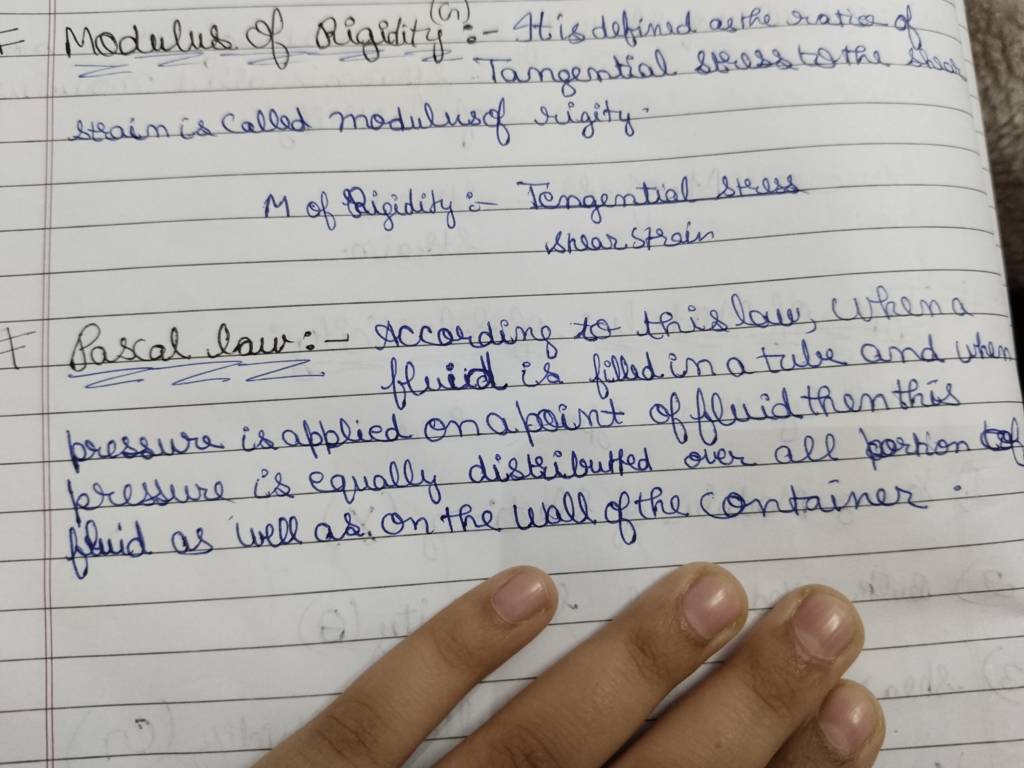 Modulus of Rigidity (G) :- It is defined as the ratio of
Tangential stress to the shear
strain is called modulus of rigity.
M of Rigidity :- Tengential stress
shear strain
Pascal law :- According to this law, when a
fluid is filled in a tube and when
pressure is applied on a point of fluid then this
pressure is equally distributted over all portion of
fluid as well as. on the wall of the container.